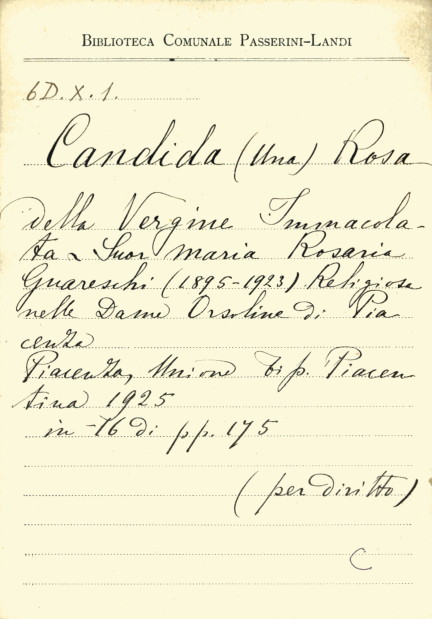 BIBLIOTECA COMUNALE PASSERINI-LANDI
6D.X.1.
Candida (Una) Rosa
della Vergine Immacola-
ta ~ Suor Maria Rosaria
Guareschi (1895-1923) Religiosa
nelle Dame Orsoline di Pia
cenza
Piacenza, Unione tip. Piacen
tina 1925
in-16 di pp. 175
(per diritto)
C